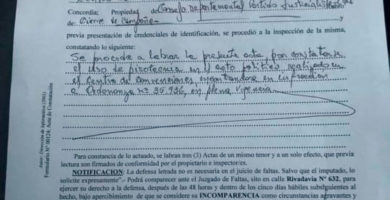 Concordia; Propiedad Consejo Departamental Partido Justicialista
de Cierre de Campaña
previa presentación de credenciales de identificación, se procedió a la inspección de la misma,
constatando lo siguiente:
Se procede a labrar la presente acta por constatarse
el uso de pirotecnia en acto político realizado en
el Centro de Convenciones,
a Ordenanza Nº en plena vigencia
Para constancia de lo actuado, se labran tres (3) Actas de un mismo tenor y a un solo efecto, que previa
lectura son firmados de conformidad por el propietario e inspectores.
NOTIFICACION: La defensa letrada no es necesaria en el juicio de faltas. Salvo que el imputado, lo
solicite expresamente".- Podrá comparecer ante el Juzgado de Faltas, sito en calle Rivadavia Nº 632, para
ejercer su derecho a la defensa, después de las 48 horas y dentro de los cinco días hábiles subsiguientes al
hecho, bajo apercibimiento de que se considere su INCOMPARENCIA como circunstancias agravantes y
Formulario Nº 00124: Acta de Constatación